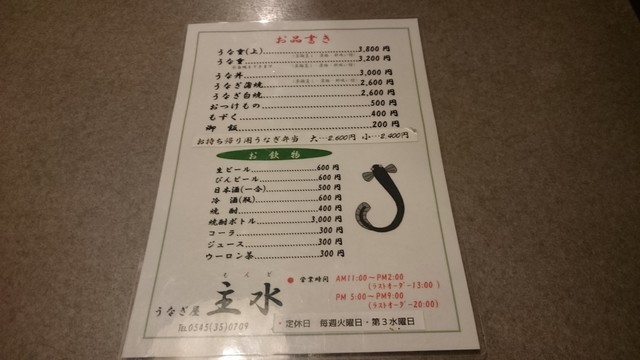 お品書き
うな重(上)……3,800円
うな重……3,200円
うな丼……3,000円
うなぎ蒲焼……2,600円
うなぎ白焼……2,600円
おつけもの……500円
もずく……400円
御 飯……200円
お持ち帰り用うなぎ弁当 大…2,600円 小…2,400円
お飲物
生ビール……600円
びんビール……600円
日本酒(一合)……500円
冷 酒(瓶)……600円
焼 酎……400円
焼酎ボトル……3,000円
コーラ……300円
ジュース……300円
ウーロン茶……300円
もんど
うなぎ屋 主水
TEL.0545(35)0709
●営業時間 AM11:00~PM2:00
(ラストオーダー13:00)
PM 5:00~PM9:00
(ラストオーダー20:00)
・定休日 毎週火曜日・第3水曜日